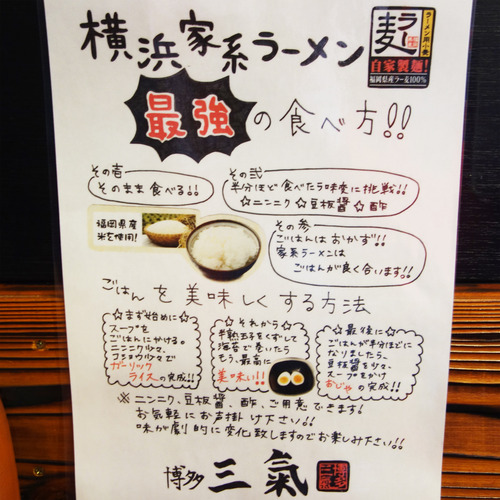 横浜家系ラーメン
ラーメン用小麦
ラー麦
自家製麺!
福岡県産ラー麦100%
最強の食べ方!!
その壱
そのまま食べる!!
その弐
半分ほど食べたら味変に挑戦!!
☆ニンニク ☆豆板醤 ☆酢
福岡県産
米を使用!
その参
ごはんはおかず!!
家系ラーメンは
ごはんが良く合います!!
ごはんを美味しくする方法
☆まず始めに☆
スープを
ごはんにかける。
ニンニク少々、
コショウ少々で
ガーリック
ライスの完成!!
☆それから☆
半熟玉子をくずして
海苔で巻いたら
もう、最高に
美味い!!
☆最後に☆
ごはんが半分ほどに
なりましたら、
豆板醤を少々、
スープをかけ
おじゃの完成!!
※ニンニク、豆板醤、酢、ご用意できます!
お気軽にお声掛け下さい!!
味が劇的に変化致しますのでお楽しみ下さい!!
博多 三氣
博多
三氣